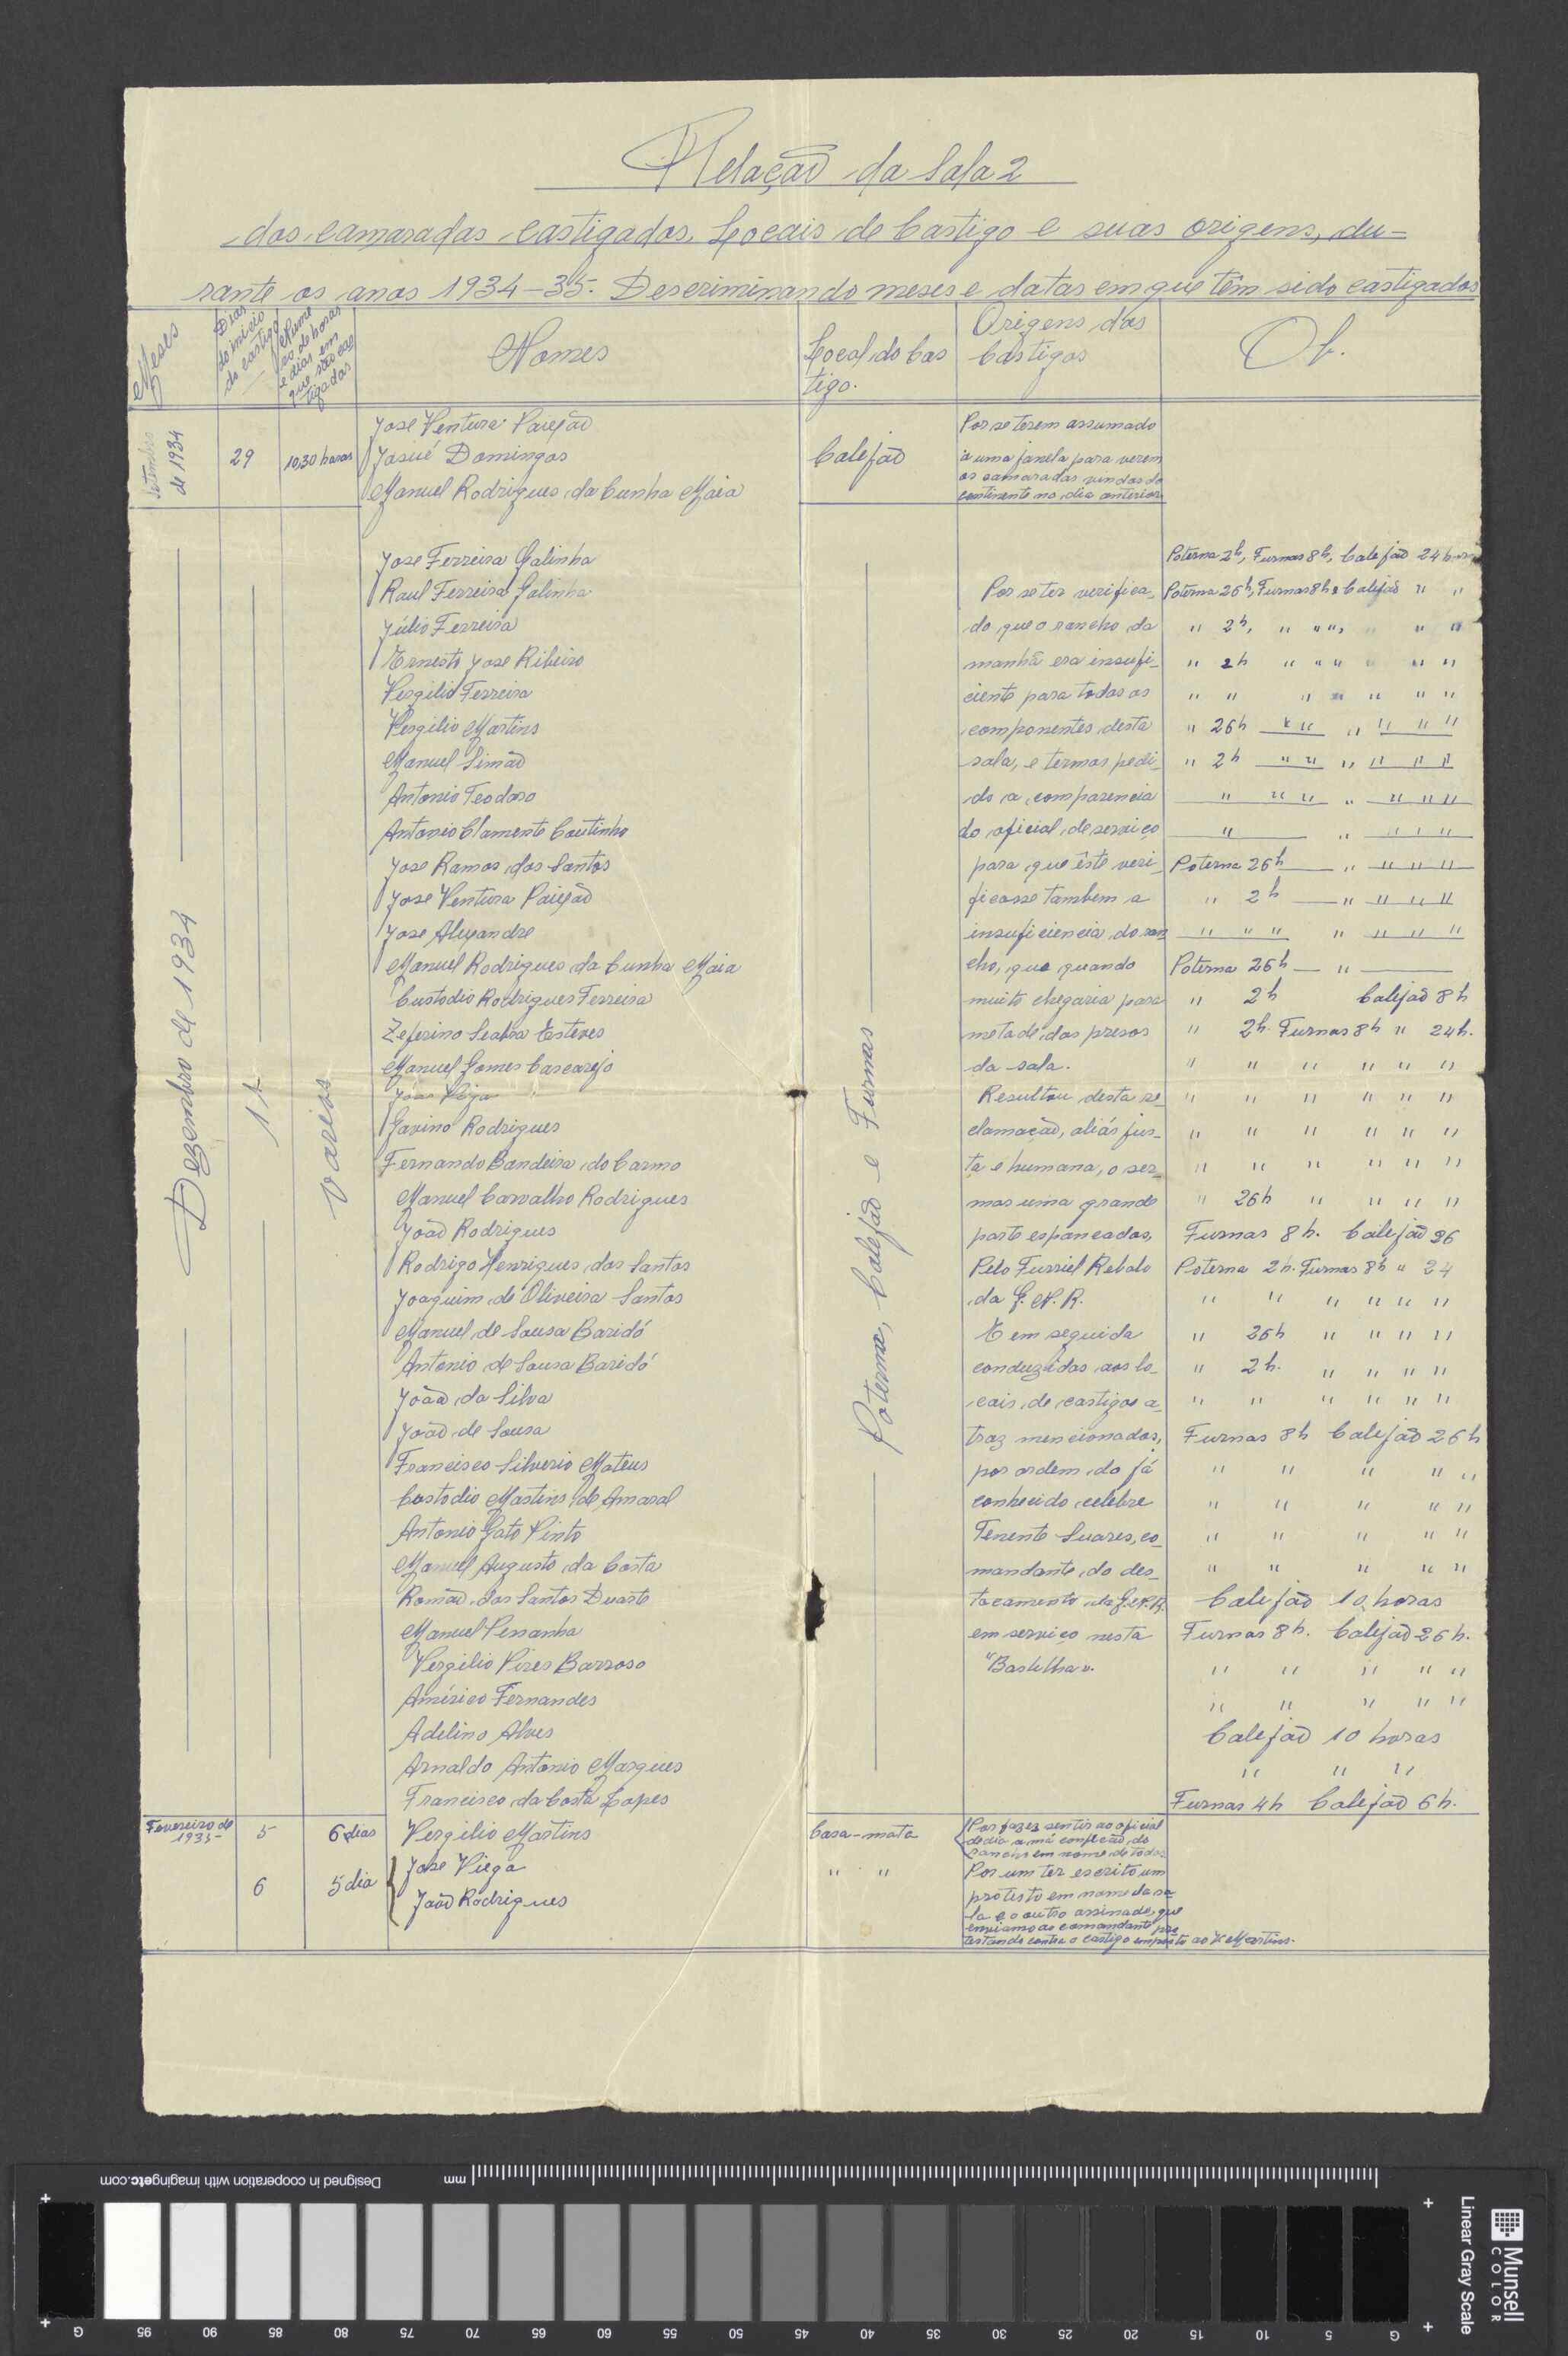 Relação da Sala 2
dos camaradas castigados, Locais de Castigo e suas origens, du-
rante os anos 1934-35. Descriminando meses e datas em que têm sido castigados
Meses
Dias do inicio do castigo
Nume ro de horas e dias em que são cas tigados
Nomes
Local do Cas
tigo.
Origens dos
Castigos
Ob.
Setembro
de 1934
29
10,30 horas
Jose Ventura Paixão
Josué Domingos
Manuel Rodrigues da Cunha Maia
Calejão
Por se terem assumado
a uma janela para verem
os camaradas vindos do
continente no dia anterior
Dezembro de 1934
11
varios
Poterna, Calejão e Furnas
Jose Ferreira Galinha
Raul Ferreira Galinha
Júlio Ferreira
Ernesto Jose Ribeiro
Vergilio Ferreira
Vergilio Martins
Manuel Simão
Antonio Teodoro
Antonio Clamente Coutinho
Jose Ramos dos Santos
Jose Ventura Paixão
Jose Alexandre
Manuel Rodrigues da Cunha Maia
Custodio Rodrigues Ferreira
Zeferino Seabra Esteves
Manuel Gomes Cascarejo
Gavino Rodrigues
Fernando Bandeira do Carmo
Manuel Carvalho Rodrigues
João Rodrigues
Rodrigo Henriques dos Santos
Joaquim de Oliveira Santos
Manuel de Sousa Baridó
Antonio de Sousa Baridó
João da Silva
João de Sousa
Francisco Silverio Mateus
Custodio Martins de Amaral
Antonio Gato Pinto
Manuel Augusto da Costa
Romão dos Santos Duarte
Manuel Penanha
Vergilio Pires Barroso
Américo Fernandes
Adelino Alves
Arnaldo Antonio Marques
Francisco da Costa Lopes
Por se ter verifica-
do que o rancho da
manhã era insufi-
ciente para todos os
componentes desta
sala, e termos pedi-
do a comparencia
do oficial de serviço
para que êste veri-
ficasse tambem a
insuficiencia do ran
cho, que quando
muito chegaria para
metade dos presos
da sala.
Resultou desta re-
clamação, aliás jus-
ta e humana, o ser-
mos uma grande
parte espancados,
Pelo Furriel Rebolo
da G. N. R.
E em seguida
conduzidos aos lo-
cais de castigos a-
traz mencionados,
por ordem do já
conhecido celebre
Tenente Soares, co-
mandante do des-
tacamento da G.N.R.
em serviço nesta
"Bastilha".
Poterna 2h, Furnas 8h, Calejão 24 horas
Poterna 26h, Furnas 8h e Calejão " "
" 2h, " " ", " "
" 2h " " " " "
" " " " " " "
" 26h " " " " " "
" 2h " " " " " "
" " " " " " "
" " " " "
Poterna 26h " " " "
" 2h " " " "
" " " " " " "
Poterna 26h "
" 2h Calejão 8h
" 2h. Furnas 8h " 24h.
" " " " " "
" " " " " "
" " " " " "
" " " " " "
" 26h " " " "
Furnas 8h. Calejão 26
Poterna 2h. Furnas 8h " 24
" " " " " "
" 26h " " " "
" 2h. " " " "
" " " " " "
Furnas 8h Calejão 26h
" " " " "
" " " " "
" " " " "
" " " " "
Calejão 10 horas
Furnas 8h. Calejão 26h.
" " " " "
" " " " "
Calejão 10 horas
" " "
Furnas 4h Calejão 6h.
Fevereiro de
1935-
5
6 dias
Vergilio Martins
Casa-mata
Por fazer sentir ao oficial
de dia a má confecão do
rancho em nome de todos
6
5 dia
Jose Viega
João Rodrigues
" "
Por um ter escrito um
protesto em nome da sa-
la e o outro assinado, que
enviamos ao comandante pro
testando contra o castigo emposto ao V. Martins.
Designed in cooperation with imagingetc.com
mm
G 95 90 85 80 75 70 65 60 55 50 45 40 35 30 25 20 15 10 5 G
Munsell
COLOR
Linear Gray Scale